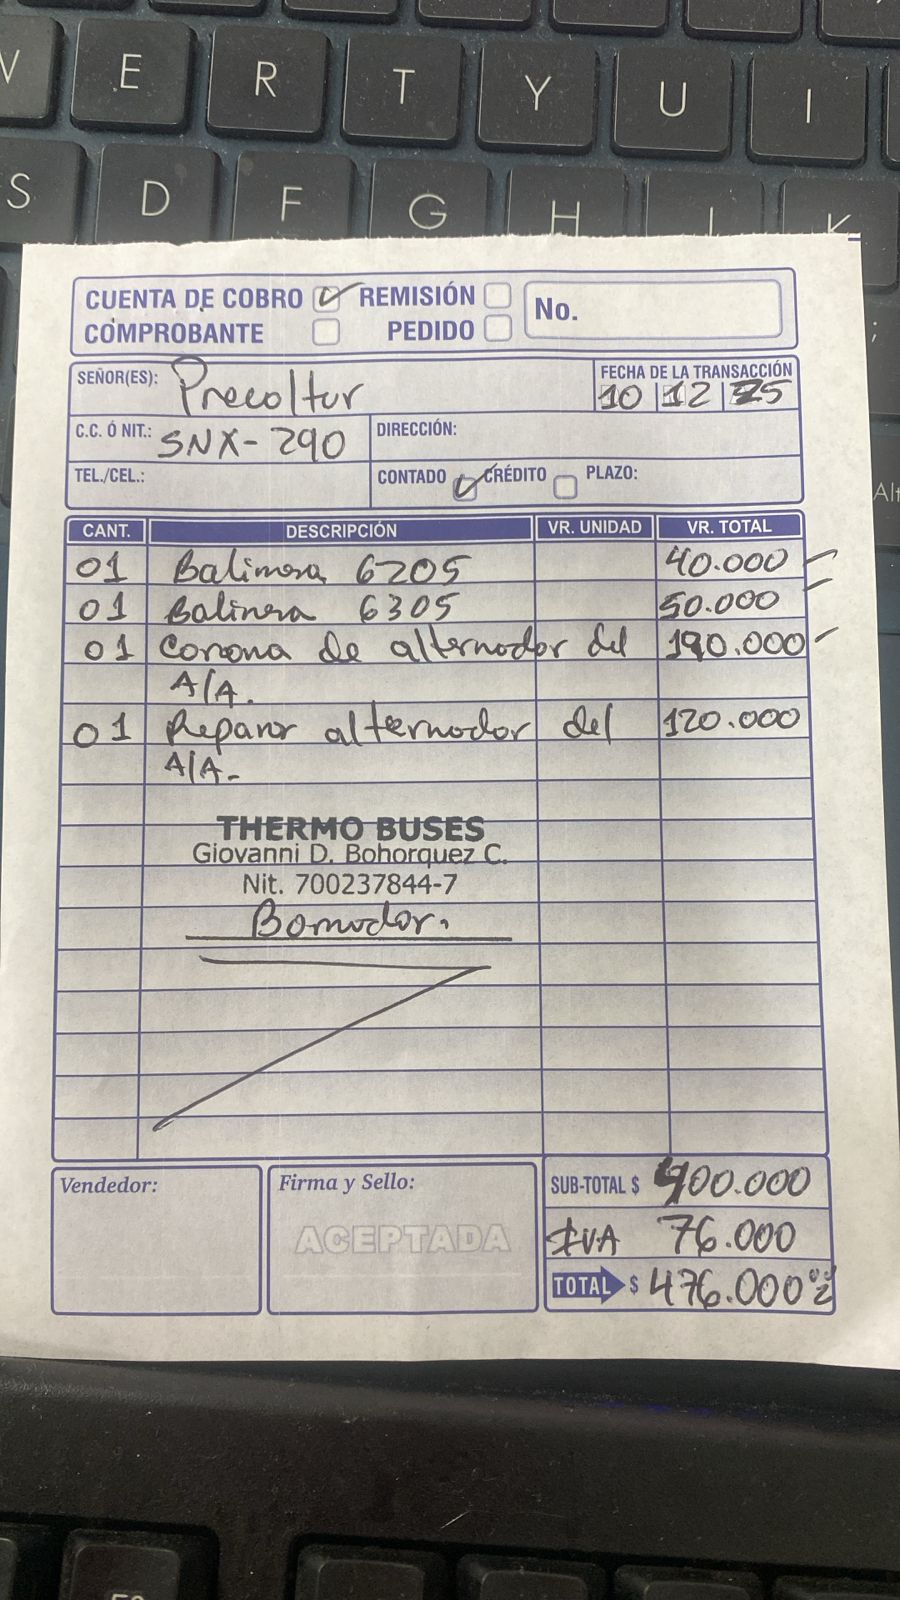 W E R T Y U I
S D F G H J K
;
Alt
CUENTA DE COBRO REMISIÓN No.
COMPROBANTE PEDIDO
SEÑOR(ES): Precoltur FECHA DE LA TRANSACCIÓN
10 12 25
C.C. Ó NIT.: SNX-290 DIRECCIÓN:
TEL./CEL.: CONTADO CRÉDITO PLAZO:
CANT. DESCRIPCIÓN VR. UNIDAD VR. TOTAL
01 Balinera 6205 40.000
01 Balinera 6305 50.000
01 Corona de alternador del 190.000
A/A.
01 Reparar alternador del 120.000
A/A-
THERMO BUSES
Giovanni D. Bohorquez C.
Nit. 700237844-7
Vendedor: Firma y Sello: SUB-TOTAL $ 400.000
ACEPTADA IVA 76.000
TOTAL $ 476.000